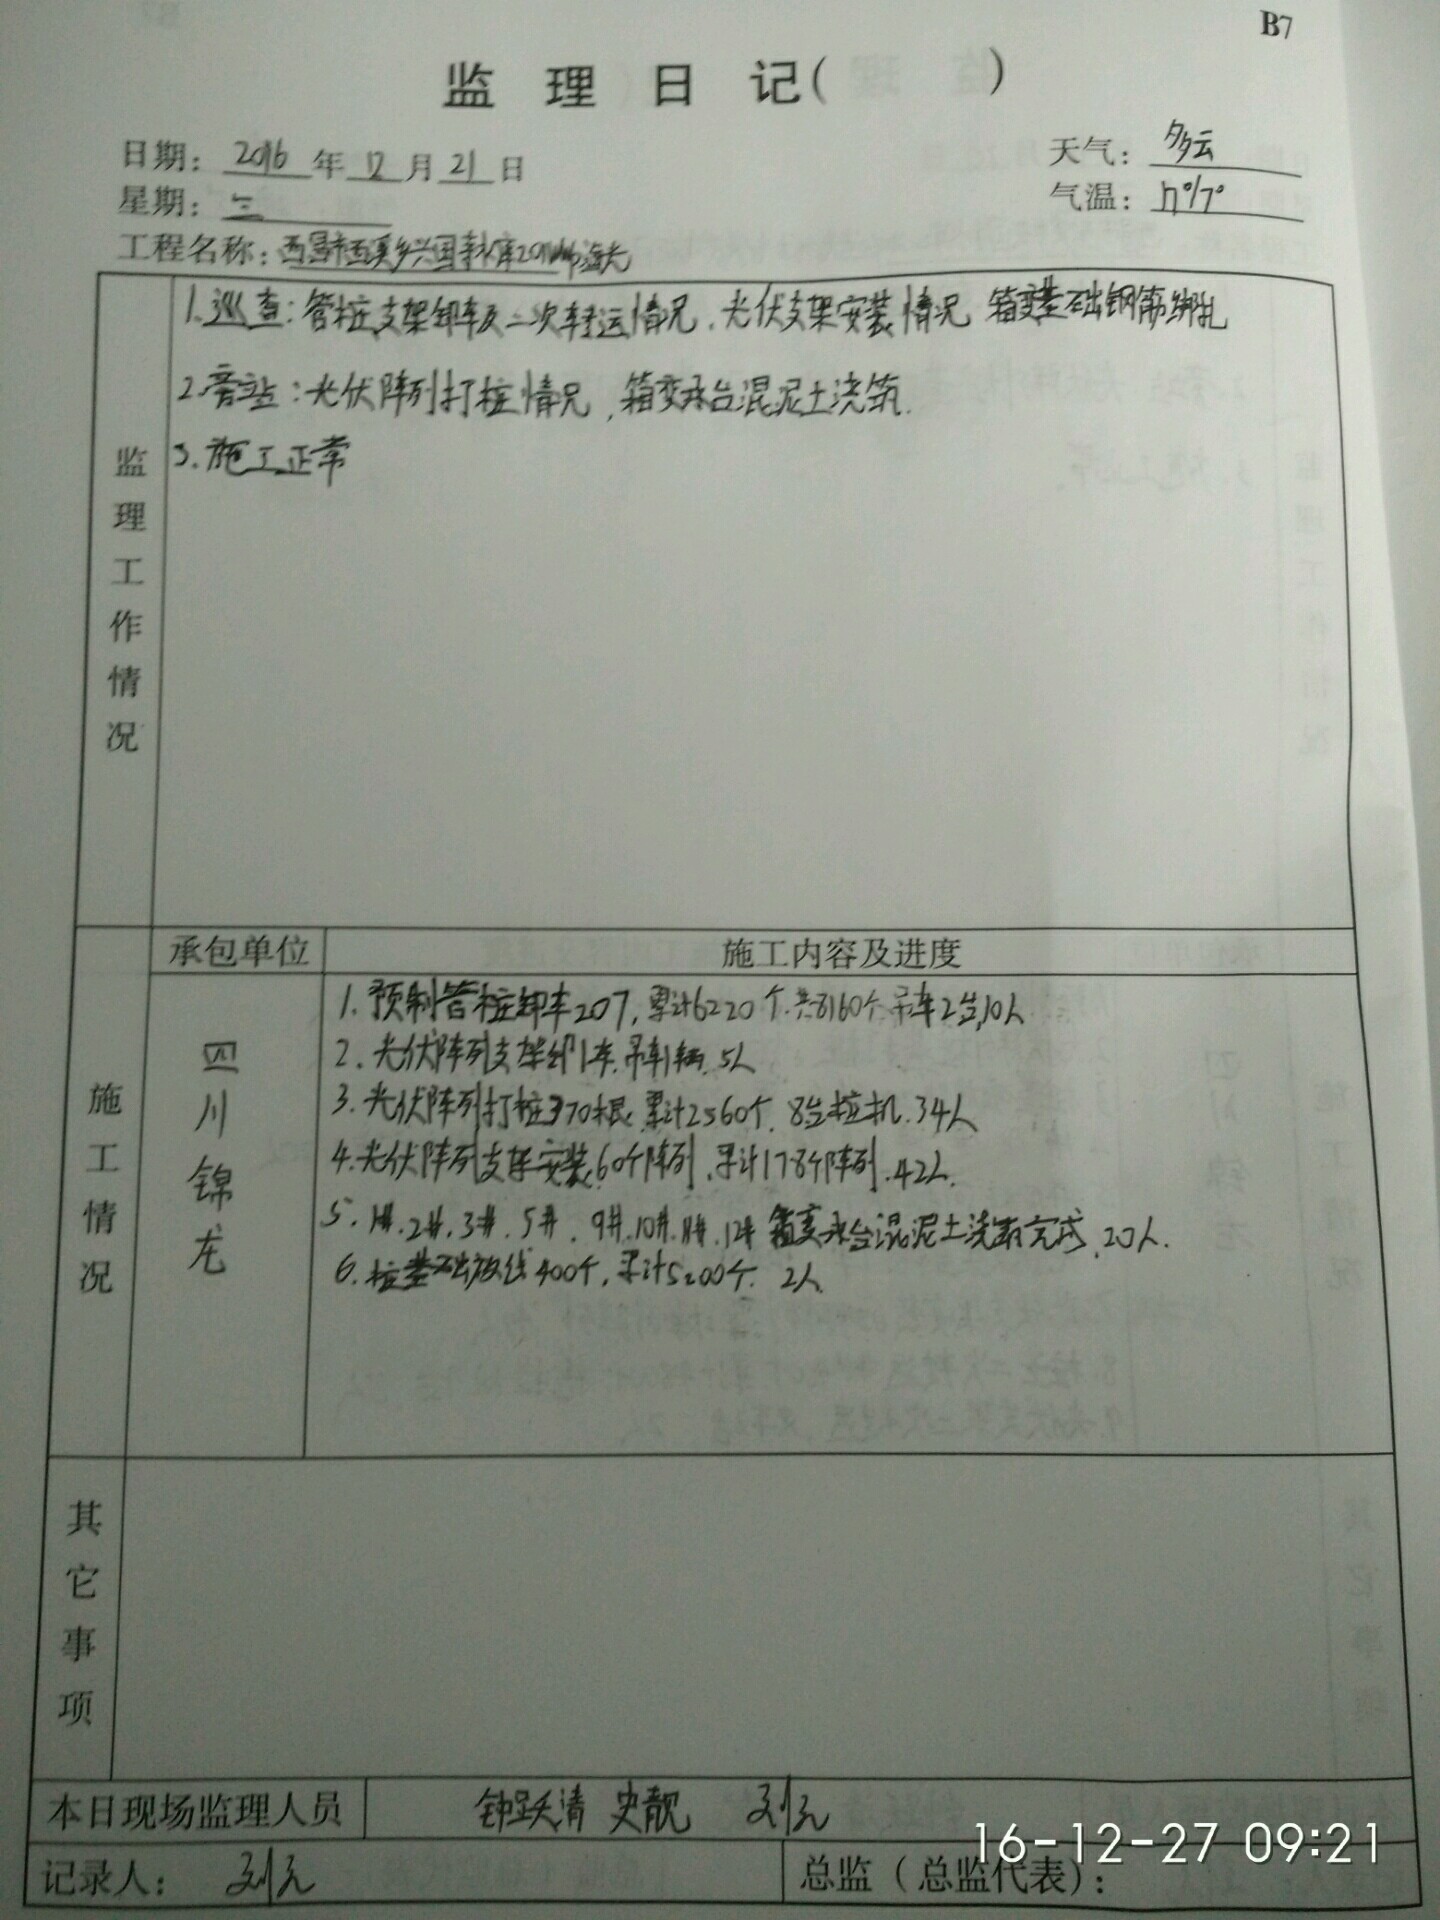 B7
监 理 日 记 ( )
日期: 2016 年 12 月 21 日
天气: 多云
星期: 三
气温: 17°/7°
工程名称: 西昌市西溪乡兴国寺水库20MW
监理工作情况
1.巡查: 管桩,支架卸车及二次转运情况、光伏支架安装情况 箱变基础钢筋绑扎
2.旁站: 光伏阵列打桩情况,箱变承台混泥土浇筑.
3.施工正常
承包单位
施工内容及进度
施工情况
四川锦龙
1.预制管桩卸车207,累计6220个.共8160个 吊车2台,10人
2.光伏阵列支架卸1车.吊车1辆.5人
3.光伏阵列打桩370根.累计2560个.8台桩机.34人
4.光伏阵列支架安装60个阵列.累计178个阵列.42人.
5.1#.2#.3#.5#.9#.10#.11#.12# 箱变承台混泥土浇筑完成.20人.
6.桩基础放线400个,累计5200个.2人
其它事项
本日现场监理人员
钟跃清 史靓
记录人:
总监(总监代表):
16-12-27 09:21